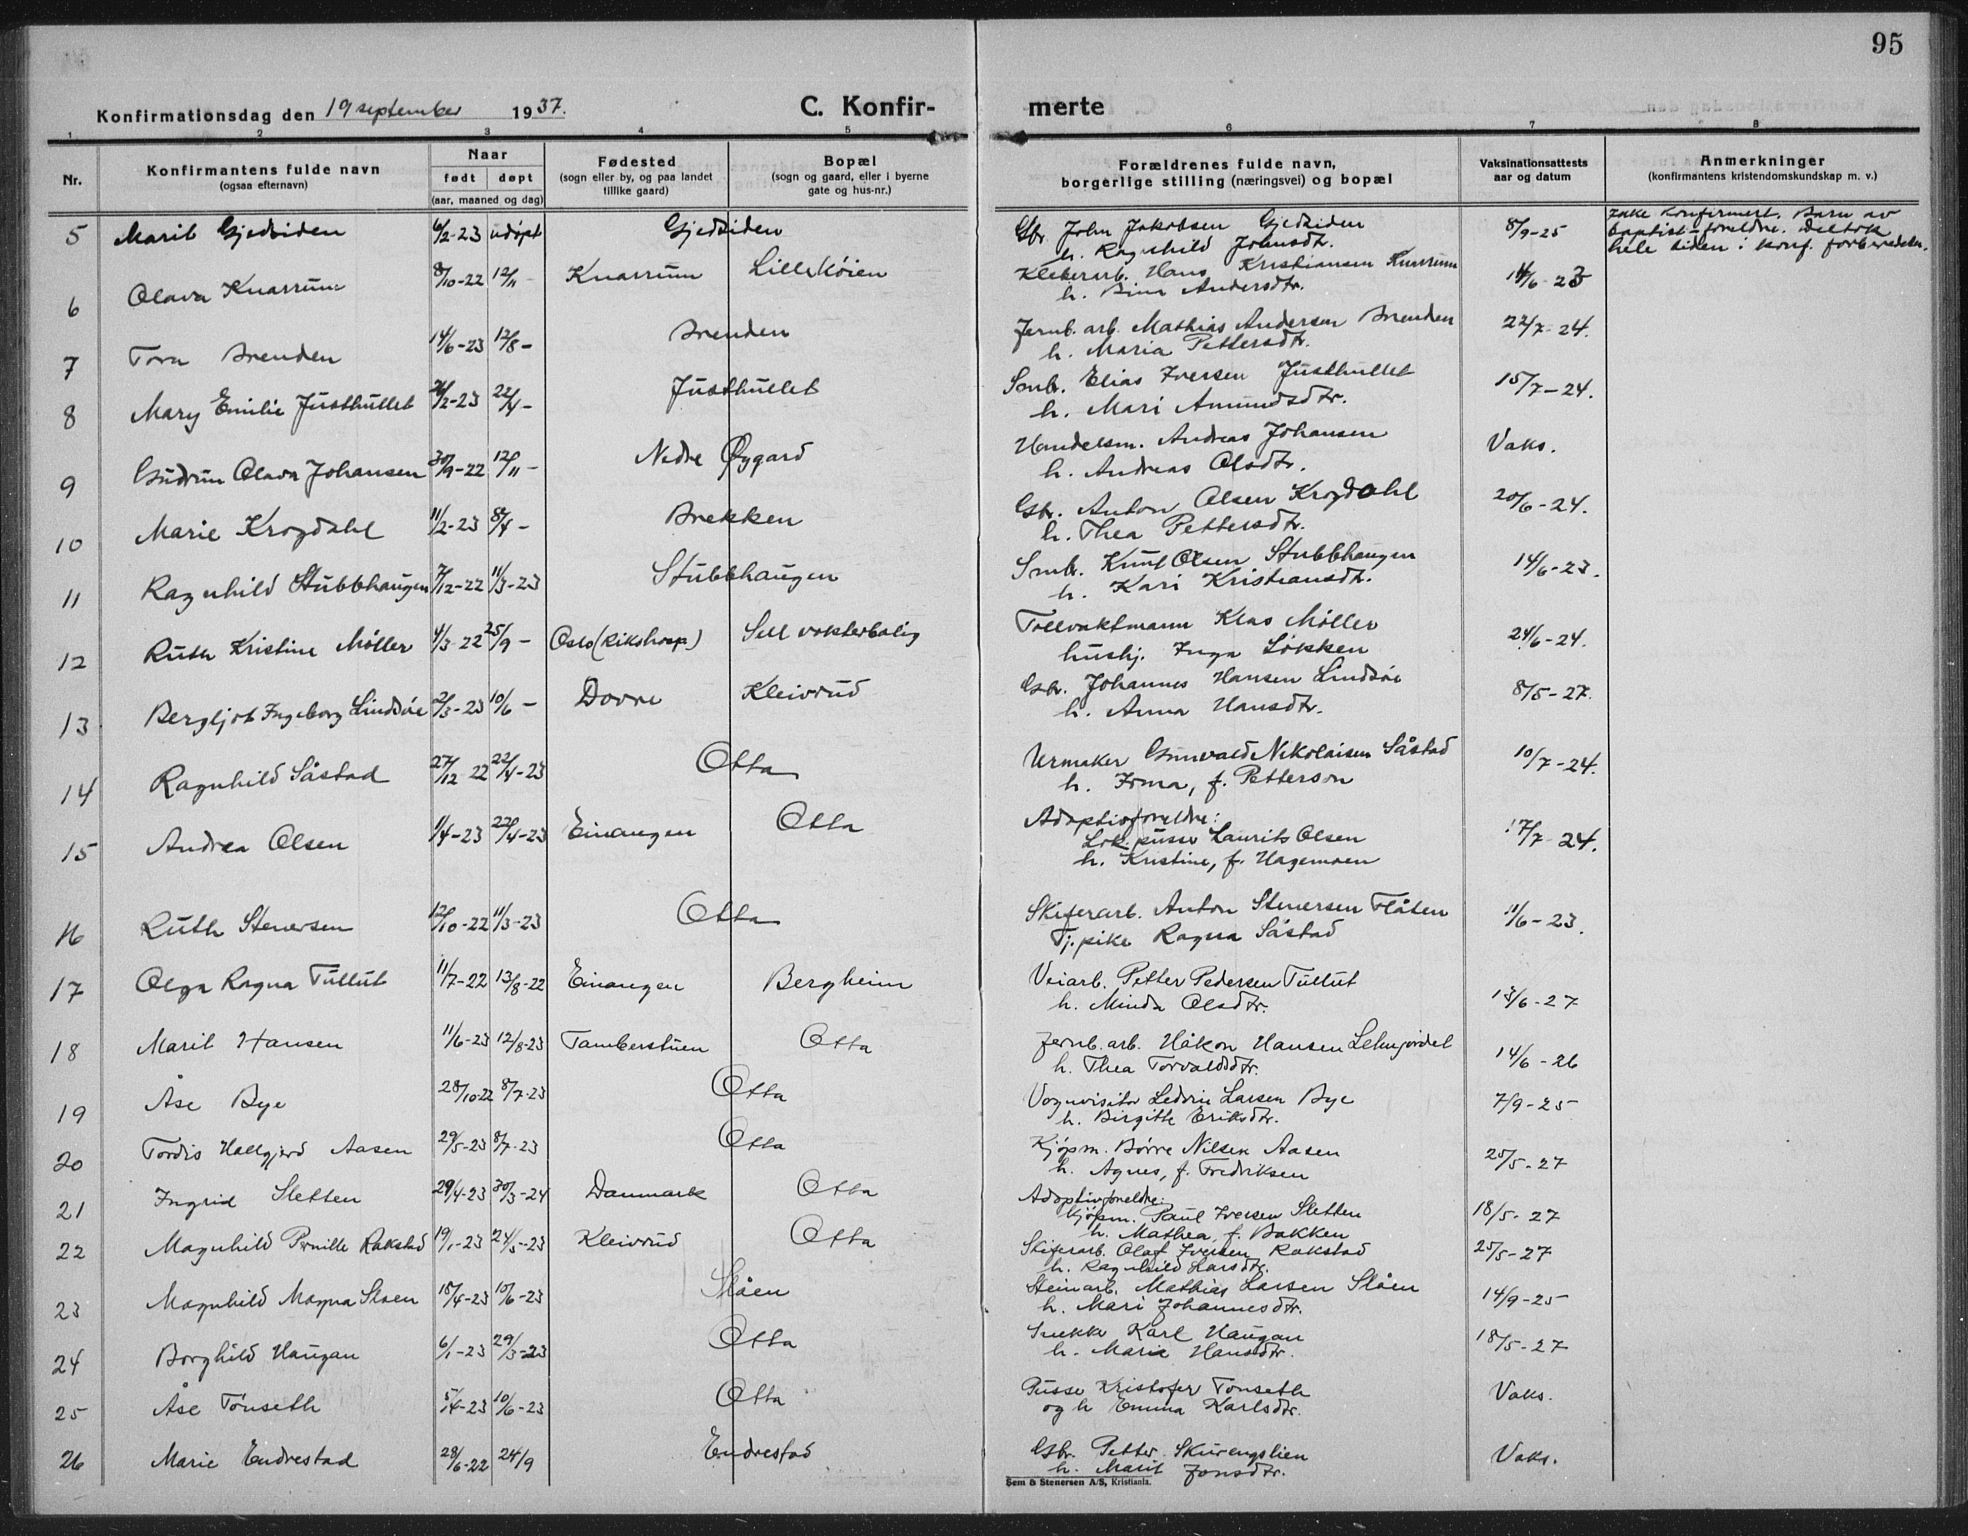 95
Konfirmationsdag den 19 september 1937.
C. Konfir- merte
1 2 3 4 5 6 7 8
Nr.
Konfirmantens fulde navn
(ogsaa efternavn)
Naar
født døpt
(aar, maaned og dag)
Fødested
(sogn eller by, og paa landet
tillike gaard)
Bopæl
(sogn og gaard, eller i byerne
gate og hus-nr.)
Forældrenes fulde navn,
borgerlige stilling (næringsvei) og bopæl
Vaksinationsattests
aar og datum
Anmerkninger
(konfirmantens kristendomskundskap m. v.)
5 Marit Gjedsiden 6/2-23 udøpt Gjedsiden Gbr. John Jakobsen Gjedsiden 8/9-25 Ikke konfirmert. Barn av
h. Ragnhild Johnsdtr. baptist-foreldre. Deltok
hele tiden i konf. forberedelsen.
6 Olava Knarrum 8/10-22 12/11- Knarrum Lillehöien Kleberarb. Hans Kristiansen Knarrum 14/6-23
h. Andersdtr.
7 Tora Brenden 14/6-23 12/8- Brenden Jernb. arb. Mathias Andersen Brenden 22/7-24.
h. Maria Pettersdtr.
8 Mary Emilie Justhullet 22/4- Justhullet Smb. Elias Iversen Justhullet 15/7-24.
h. Mari Amundsdtr.
9 Gudrun Olava Johansen 30/9-22 12/11- Nedre Øygard Handelsm. Andreas Johansen Vaks.
h. Andreas Olsdtr.
10 Marie Krogdahl 11/2-23 8/4- Brekken Gbr. Anton Olsen Krogdahl 20/6-24.
h. Thea Pettersdtr.
11 Ragnhild Stubbhaugen 7/12-22 11/3-23 Stubbhaugen Smb. Knut Olsen Stubbhaugen 14/6-23.
h. Kari Kristiansdtr.
12 Ruth Kristine Møller 4/3-22 25/9- Oslo (Rikshosp.) Sell vokterbolig Tollvaktmann Klas Møller 24/6-24.
hushj. Inga Løkken
13 Bergljot Ingeborg Lindsøe 2/3-23 10/6- Dovre Kleivrud Gbr. Johannes Hansen Lindsøe 8/5-27.
h. Anna Hansdtr.
14 Ragnhild Såstad 27/12 22 22/4-23 Otta Urmaker Gunvald Nikolaisen Såstad 10/7-24.
h. Irma, f. Petterson
15 Andrea Olsen 1/4-23 22/4-23 Einangen Otta Adoptivforeldre: 17/7-24.
Lok. pusser Laurits Olsen
h. Kristine, f. Hagemoen
16 Ruth Stenersen 12/10-22 11/3-23 Otta Skiferarb. Anton Stenersen Flåten 11/6-23.
Tj. pike Ragna Såstad
17 Olga Ragna Tullut 11/7-22 13/8-22 Einangen Bergheim Veiarb. Petter Pedersen Tullut 13/6-27
h. Minda Olsdtr.
18 Marit Hansen 11/6-23 12/8-23 Tamberstuen Otta Jernb. arb. Håkon Hansen 14/6-26
h. Thea Torvaldsdtr.
19 Åse Bye 28/10-22 8/7-23 Otta Vognvisitør Larsen Bye 7/9-25
h. Birgitte Eriksdtr.
20 Tordis Hallgjerd Aasen 29/5-23 8/7-23 Otta Kjøpm. Børre Nilsen Aasen 25/5-27
h. Agnes, f. Fredriksen
21 Ingrid Sletten 29/4-23 30/3-24 Danmark Otta Adoptivforeldre: 18/5-27
kjøpm. Paul Iversen Sletten
h. Mathea, f. Bakken
22 Magnhild Pernille Rakstad 19/1-23 24/5-23 Kleivrud Otta Skiferarb. Olaf Iversen Rakstad 25/5-27
h. Ragnhild Larsdtr.
23 Magnhild Magna Slåen 18/4-23 10/6-23 Slåen Steinarb. Mathias Larsen Slåen 14/9-25
h. Mari Johannesdtr.
24 Borghild Haugan 6/1-23 29/3-23 Otta Snekker Karl Haugan 18/5-27
h. Marie Hansdtr.
25 Åse Tönseth 5/4-23 10/6-23 Otta Pusser Kristofer Tönseth Vaks.
og h Emma Karlsdtr.
26 Marie Endrestad 28/6-22 24/9 Endrestad Gbr. Petter Skurengslien Vaks.
h. Marit Jonsdtr.
Sem & Stenersen A/S, Kristiania.